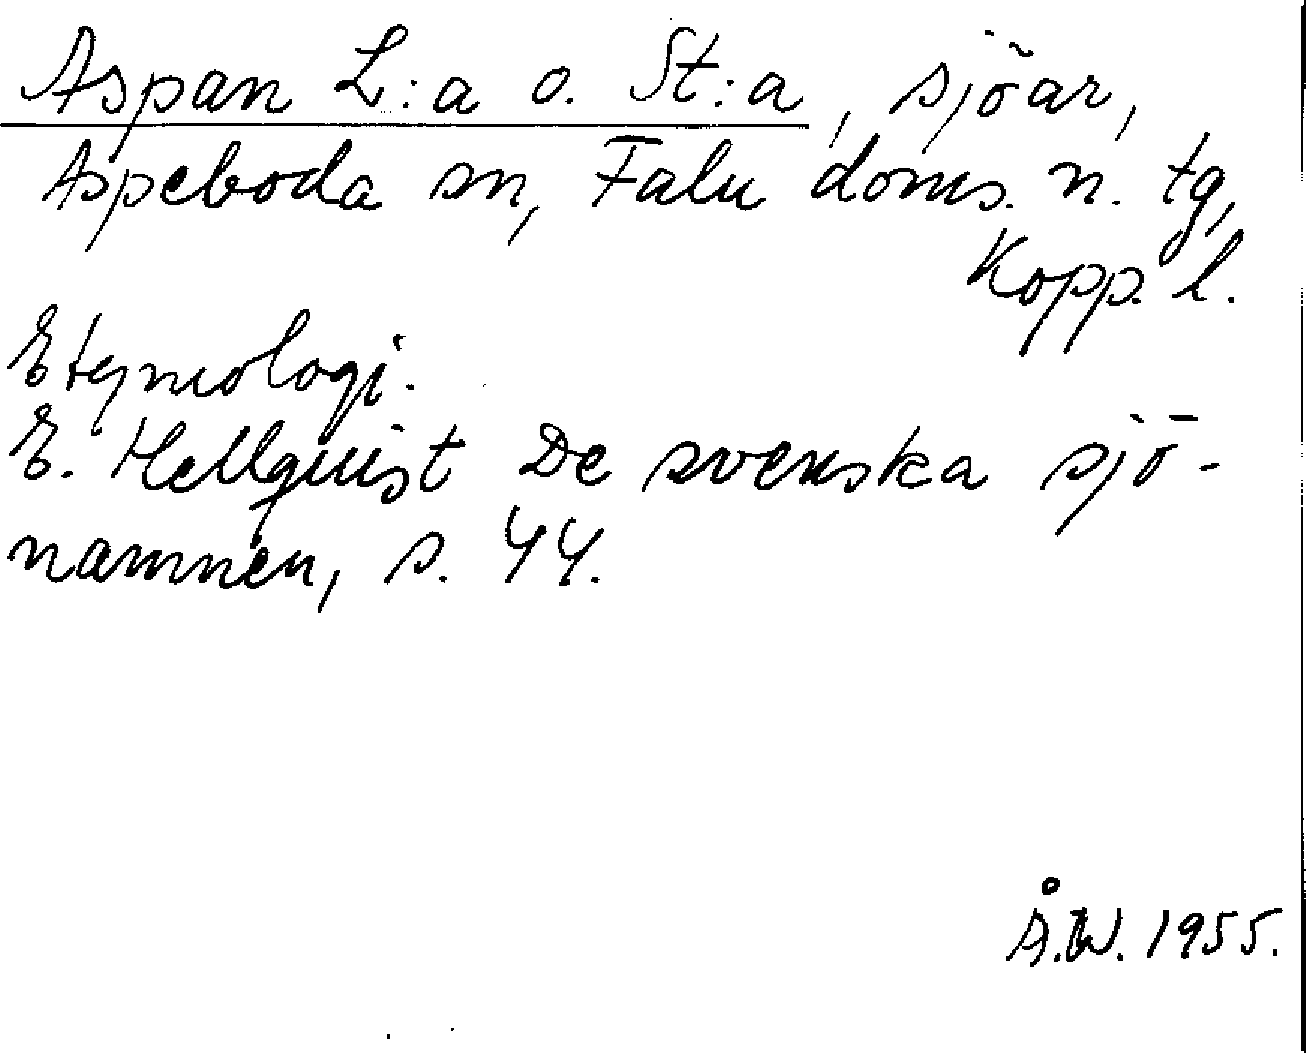 Aspan L:a o. St:a, sjöar,
Aspeboda sn, Falu doms. n. tg,
Kopp. l.
Etymologi.
E. Hellquist De svenska sjö-
namnen, s. 44.
Å.W. 1955.